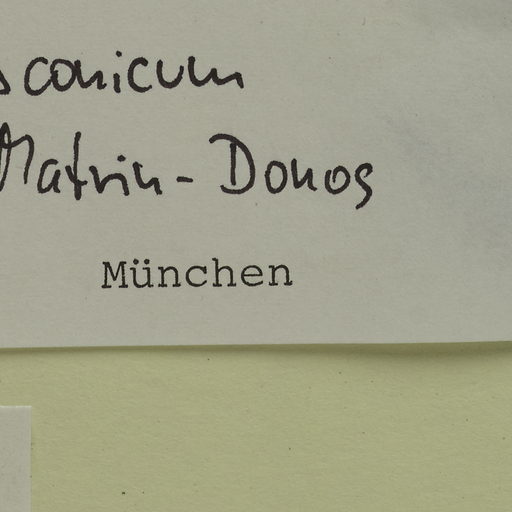 sconicum
Matrin-Donos
München